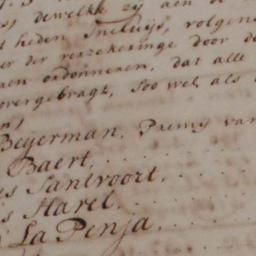 dewelke zy aen de
heden Incluijs, volgens
der verzekeringe door de
ordonneren, dat alle
overgebragt, soo wel als
Beyerman, Premy van
Baert,
Santvoort,
s Harel.
La Penja.